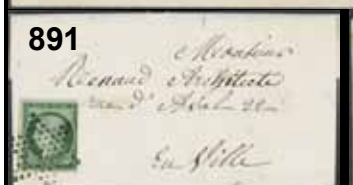 891
Monsieur
Renaud Architecte
rue d'
En Ville